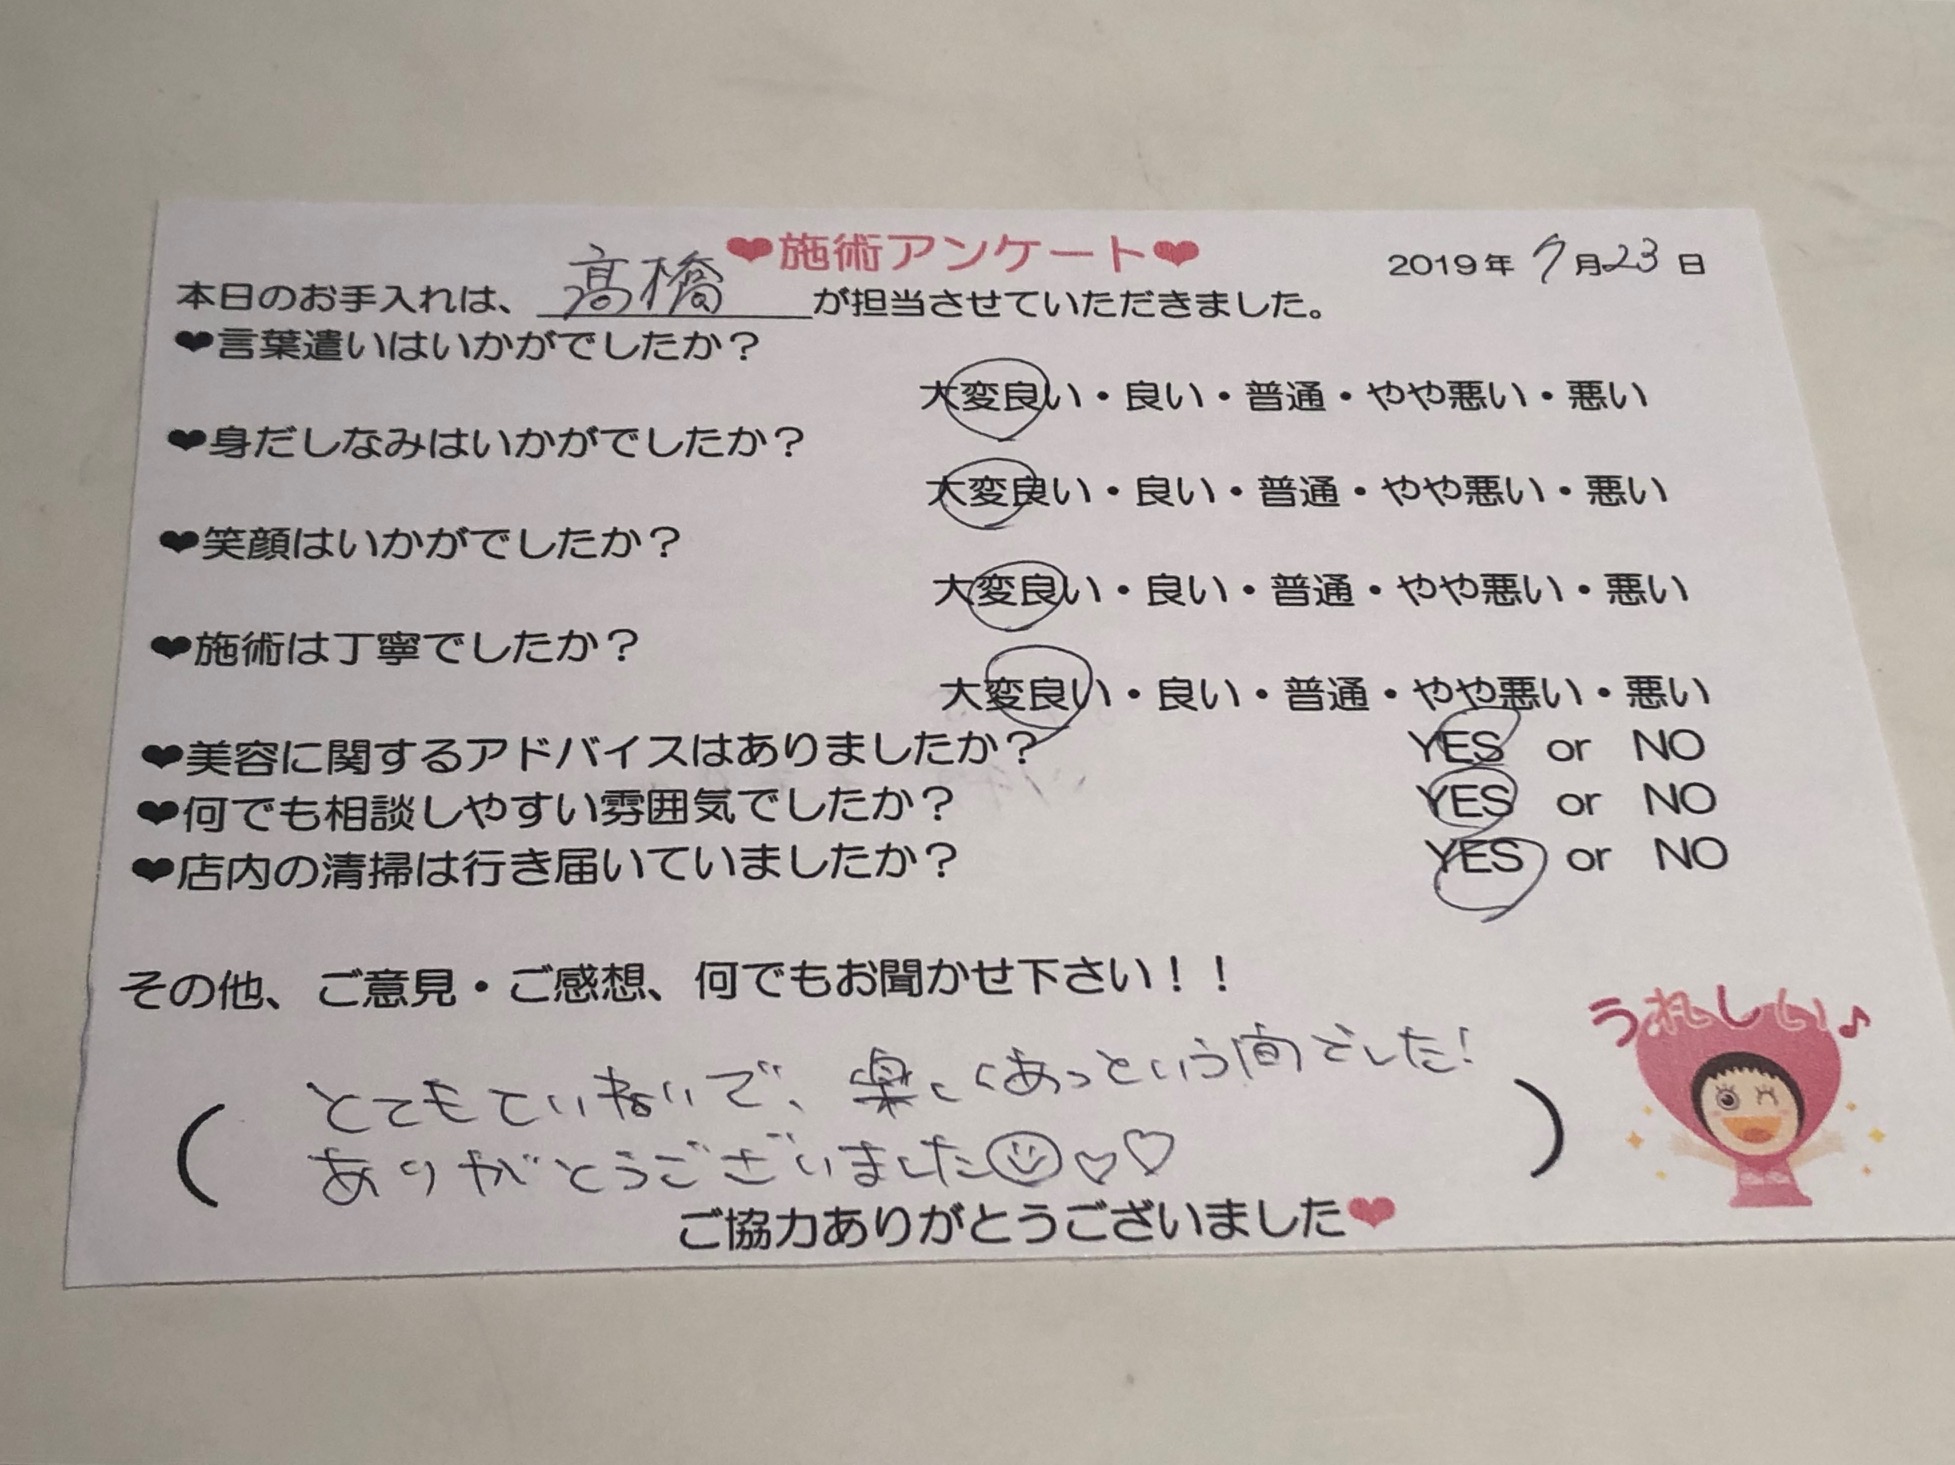 ❤施術アンケート❤
2019年 7月23日
本日のお手入れは、髙橋が担当させていただきました。
❤言葉遣いはいかがでしたか？
大変良い・良い・普通・やや悪い・悪い
❤身だしなみはいかがでしたか？
大変良い・良い・普通・やや悪い・悪い
❤笑顔はいかがでしたか？
大変良い・良い・普通・やや悪い・悪い
❤施術は丁寧でしたか？
大変良い・良い・普通・やや悪い・悪い
❤美容に関するアドバイスはありましたか？ YES or NO
❤何でも相談しやすい雰囲気でしたか？ YES or NO
❤店内の清掃は行き届いていましたか？ YES or NO
その他、ご意見・ご感想、何でもお聞かせ下さい！！
うれしい♪
(とてもていねいで、楽しくあっという間でした!
ありがとうございました☺♡♡)
ご協力ありがとうございました❤